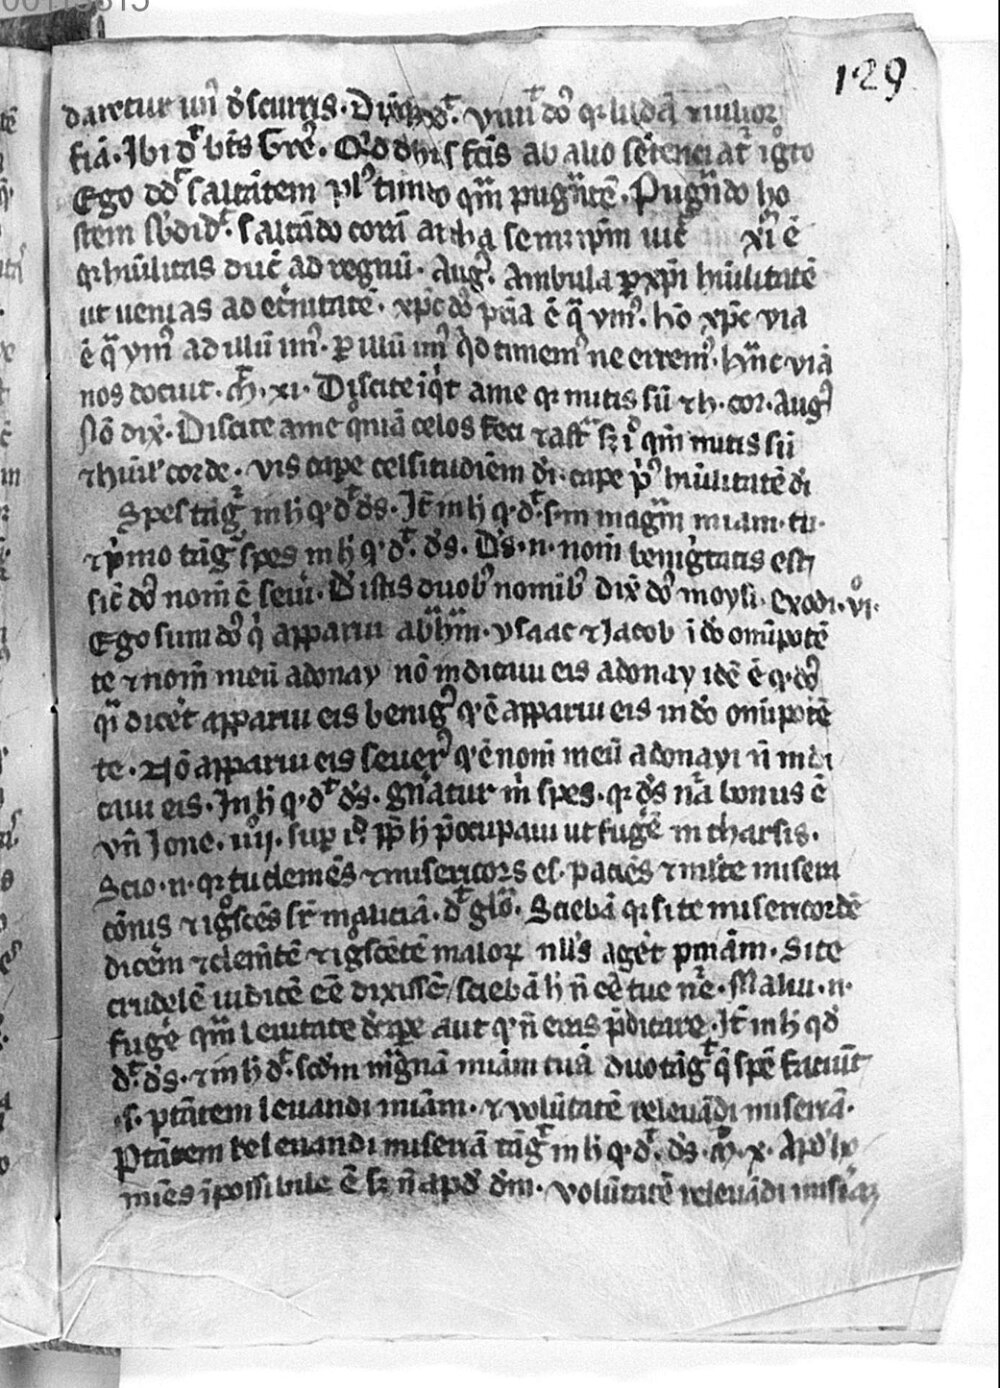 129
daretur un̄ discurris. Dix
fiā. Ibi d̄t bt̄s Gre᷒. Q'd d hīs fc̄is ab alio sētenciat᷑ ig°to
Ego dd̄ saltātem pl' timeo qm̄ pugn̄tē. Pugn̄do ho
stem sb'did̄t. saltādo corā archa semetip̄m uic̄ xi ē
qr hūilitas duc̄ ad regnū. Aug᷒. Ambula p xp̄i hūilitatē
ut uenias ad et̄nitatē. xp̄c do᷒ pc̄ia ē q̄ ym᷒. hō xp̄c via
ē q̄ ym᷒ ad illū im᷒. p illū im᷒ q'd timem᷒ ne errem᷒. hūc viā
nos docuit. M̄. xi. Discite iq't a me qr mitis sū ⁊ h. cor. Aug᷒
Nō dix̄. Discite a me q°niā celos feci ⁊ ast᷑ sꝫ i° qm̄ mitis sū
⁊ hūil' corde. vis cape celsitudīem di. cape p'᷒ hūilitatē di
Spes tāg᷑ in h̄ q. d̄t ds. It̄ in h̄ q. d̄t. s. m magn̄ miam. tu.
⁊ p'mo tāg᷑ spes in h̄ q. d̄t. ds. Ds. n. nom̄ benig°tatis est
sic̄ do᷒ nom̄ ē seui. D istis duob᷒ nomib᷒ dix̄ do᷒ moysi. exodi. vi°.
Ego sum do᷒ q' apparui abh̄m. ysaac ⁊ Jacob ī do omīpotē
te ⁊ nom̄ meū adonay nō indicaui eis adonay idē ē q. do᷒
q̄i dicet apparui eis benig᷒ q. ē apparui eis in do omīpotē
te. Nō apparui eis seuer᷒ q. ē nom̄ meū adonayi n̄ indi
caui eis. In h̄ q. d̄t ds. gn̄atur m̄ spes. qr ds nr̄a bonus ē
vn̄ Jone. iiij. sup i° pp̄ h̄ p̄ocupaui ut fugē in tharsis.
Scio. n. qr tu clemēs ⁊ misericors es. paciēs ⁊ mlte misein
cōnis ⁊ ig°scēs sr̄ maliciā. d̄t glo᷒. Sciebā qr si te misericordē
dicēm ⁊ clemt̄ē ⁊ ig°scētē malor᷒ null's aget pn̄iām. Si te
crudelē iudicē cē dixissē sciebā h̄ n̄ cē tue nr̄e. Malui. n.
fugē qm̄ leuitate dcipe aut q. n̄ eras p̄dicare. It̄ in h̄ q'd
d̄t. ds. ⁊ in h̄ d̄t. scdm mgnā miām tuā duo tāg᷑ q̄ spē faciūt
.s. ptātem leuandi miām. ⁊ volūtatē releuādi miseriā.
Ptātem releuandi miseriā tāg᷑ in h̄ q. d̄t. ds. M̄. x. Apd ho
mīes īpossibile ē sꝫ n̄ apd dm̄. volūtatē releuādi